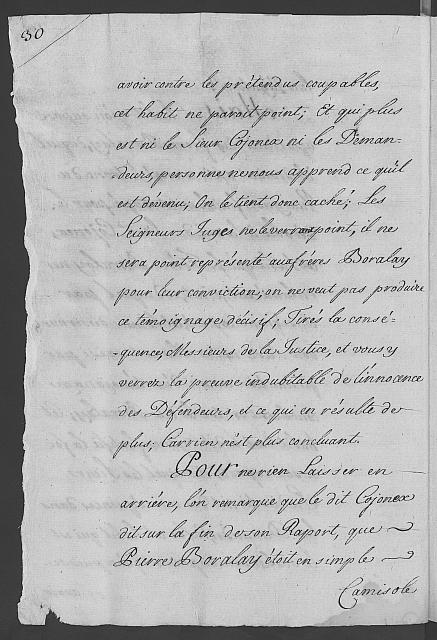 30
avoir contre les prétendus coupables,
cet habit ne paroit point; Et qui plus
est ni le Sieur Cojonex ni les Deman-
deurs, personne ne nous apprend ce qu'il
est dévenu; On le tient donc caché; Les
Seigneurs Juges ne le verront point, il ne
sera point représenté aux fréres Boralay
pour leur conviction; on ne veut pas produire
ce témoignage décisif; Tirés la consé-
quence, Messieurs de la Justice, et vous y
verrez la preuve indubitable de l'innocence
des Défendeurs, et ce qui en résulte de
plus; Car rien n'est plus concluant.
Pour ne rien Laisser en
arriére, l'on remarque que le dit Cojonex
dit sur la fin de son Raport, que
Pierre Boralay étoit en simple
Camisole